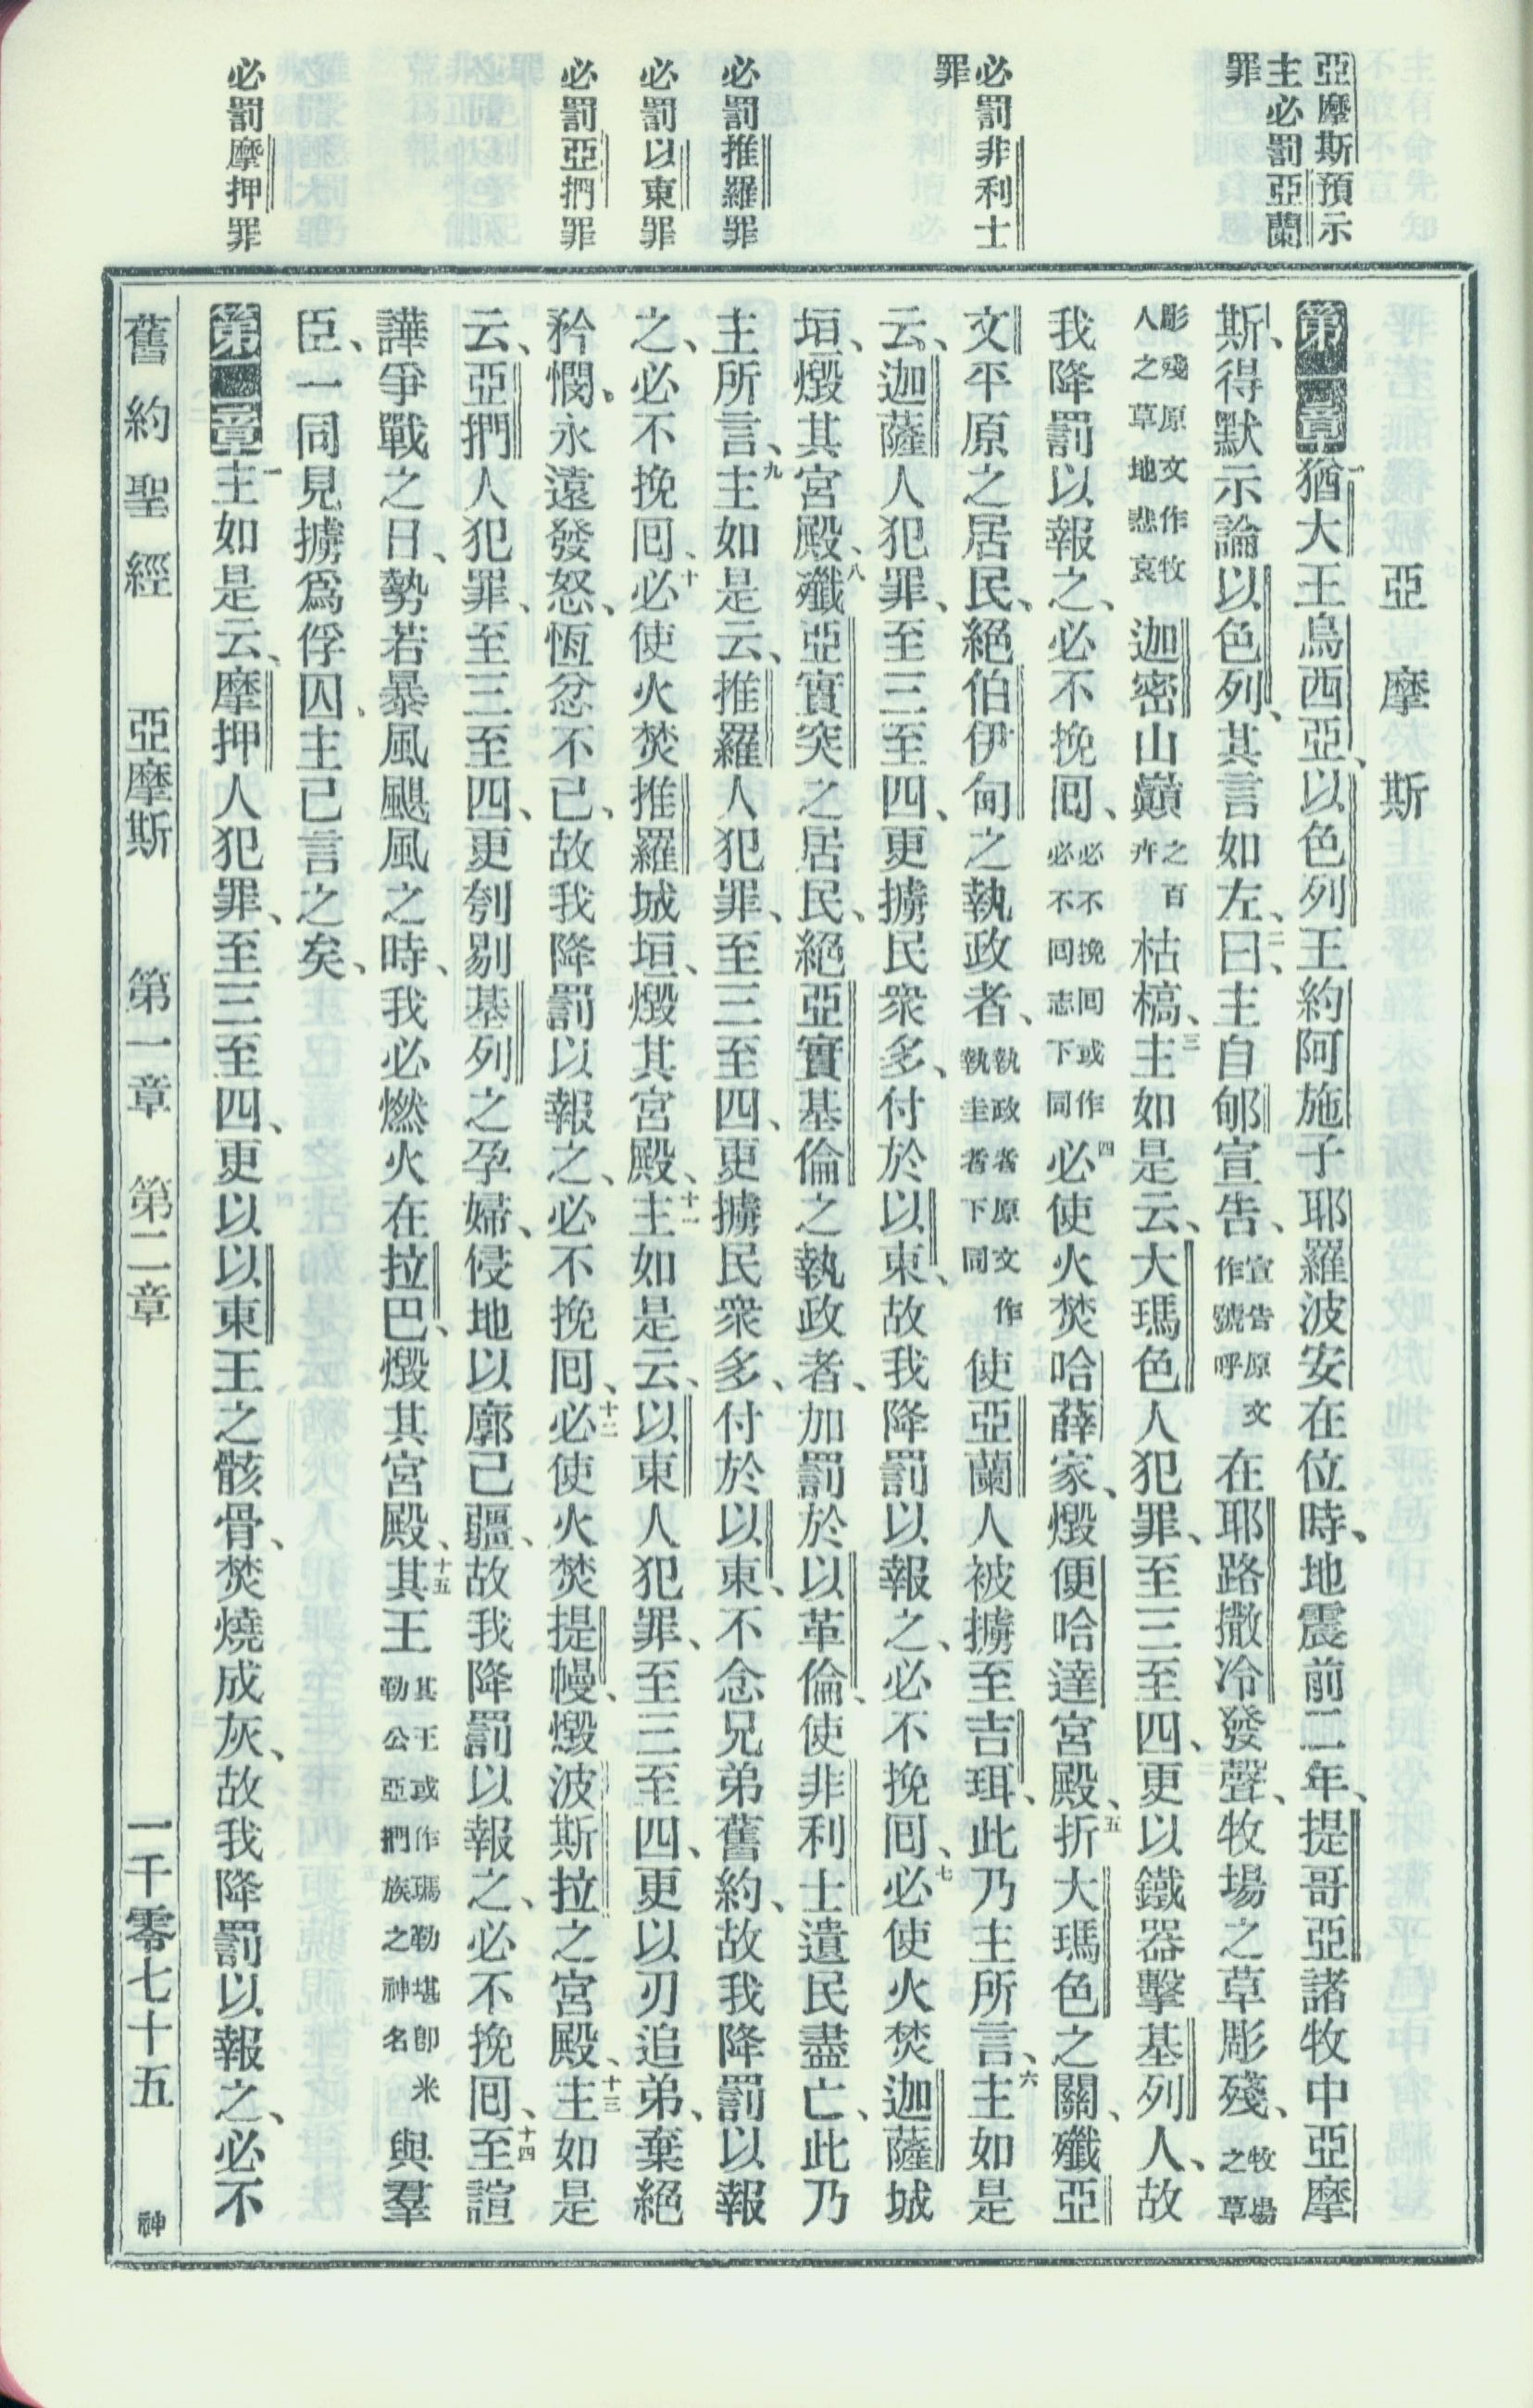 亞摩斯預示
主必罰亞蘭
罪
必罰非利士
罪
必罰推羅罪
必罰以東罪
必罰亞捫罪
必罰摩押罪
亞摩斯
第一章 一猶大王烏西亞、以色列王約阿施子耶羅波安在位時、地震前二年、提哥亞諸牧中亞摩
斯、得默示論以色列、其言如左、二曰、主自郇宣告、宣告原文作號呼在耶路撒冷發聲、牧場之草彫殘、牧場之草
彫殘原文作牧人之草地悲哀迦密山巔之百卉枯槁、三主如是云、大瑪色人犯罪、至三至四、更以鐵器擊基列人、故
我降罰以報之、必不挽囘、必不挽囘或作必不囘志下同四必使火焚哈薛家、燬便哈達宮殿、五折大瑪色之關、殲亞
文平原之居民、絕伯伊甸之執政者、執政者原文作執圭者下同使亞蘭人被擄至吉珥、此乃主所言、六主如是
云、迦薩人犯罪、至三至四、更擄民衆多、付於以東、故我降罰以報之、必不挽囘、七必使火焚迦薩城
垣、燬其宮殿、八殲亞實突之居民、絕亞實基倫之執政者、加罰於以革倫、使非利士遺民盡亡、此乃
主所言、九主如是云、推羅人犯罪、至三至四、更擄民衆多、付於以東、不念兄弟舊約、故我降罰以報
之、必不挽囘、十必使火焚推羅城垣、燬其宮殿、十一主如是云、以東人犯罪、至三至四、更以刃追弟、棄絕
矜憫、永遠發怒、恆忿不已、故我降罰以報之、必不挽囘、十二必使火焚提幔、燬波斯拉之宮殿、十三主如是
云、亞捫人犯罪、至三至四、更刳剔基列之孕婦、侵地以廓己疆、故我降罰以報之、必不挽囘、十四至諠
譁爭戰之日、勢若暴風颶風之時、我必燃火在拉巴、燬其宮殿、十五其王其王或作瑪勒堪卽米勒公亞捫族之神名與羣
臣、一同見擄爲俘囚、主已言之矣、
第二章 一主如是云、摩押人犯罪、至三至四、更以以東王之骸骨、焚燒成灰、故我降罰以報之、必不
舊約聖經 亞摩斯 第一章 第二章 一千零七十五 神